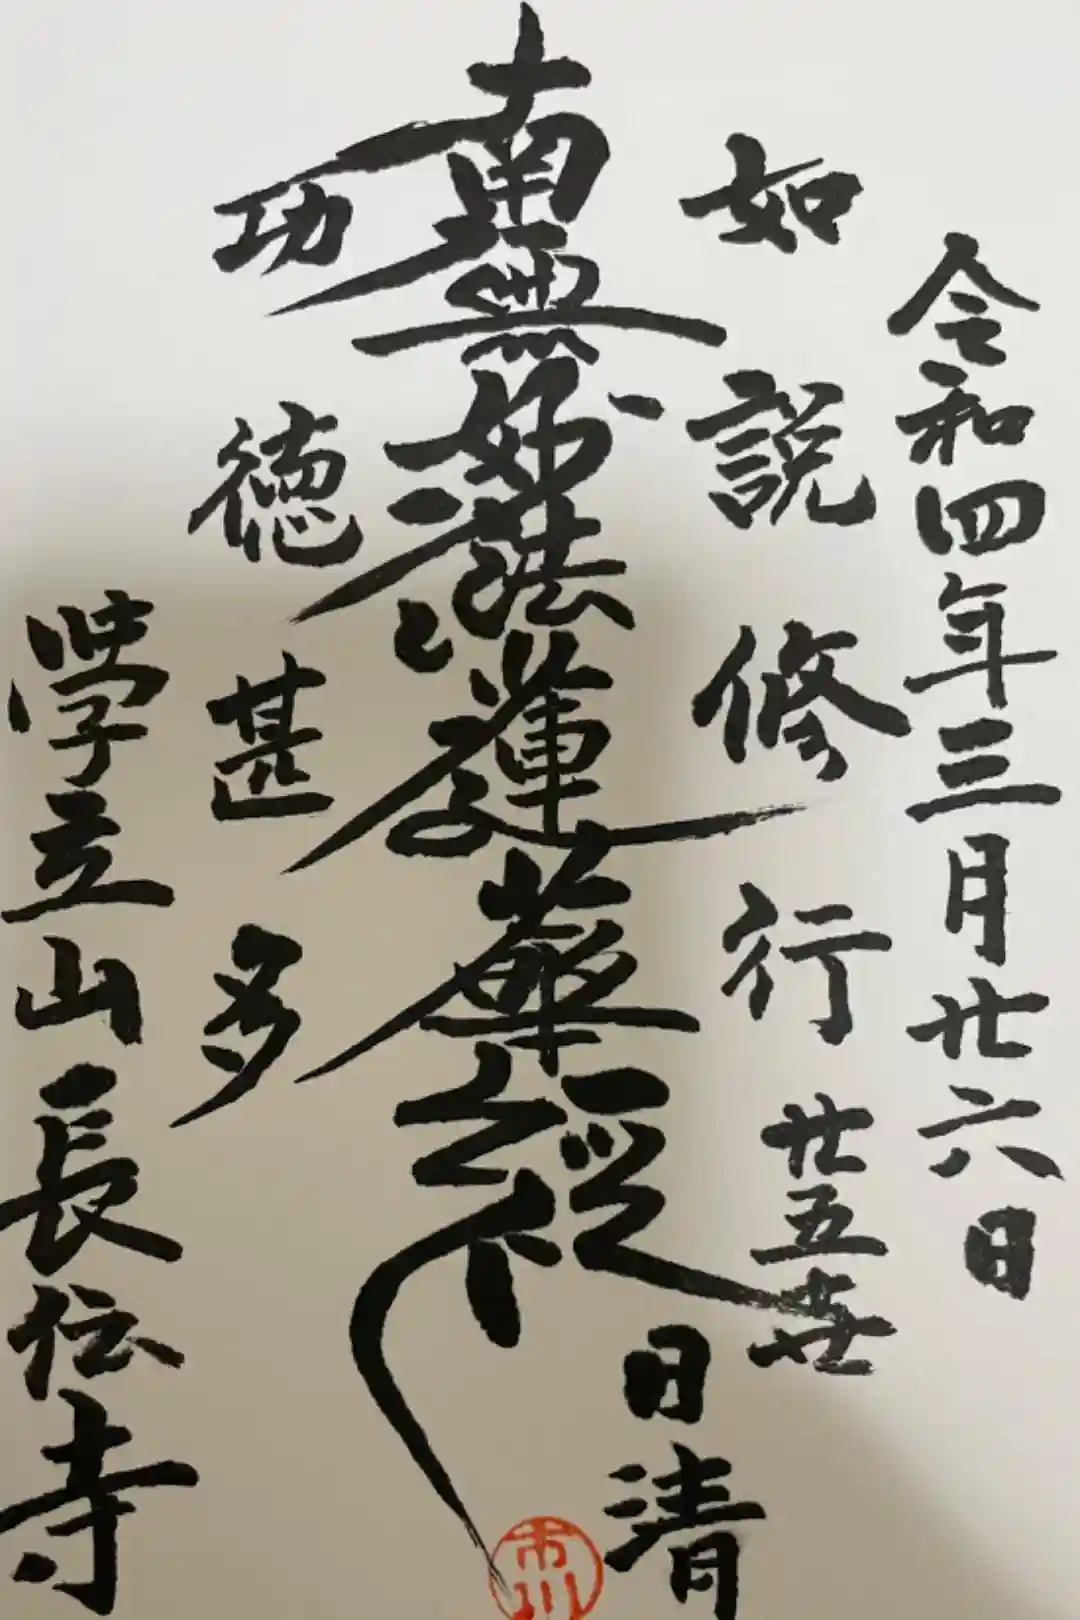 令和四年三月廿六日
如説修行
廿五世
日清
南無妙法蓮華経
功徳甚多
學立山長伝寺
市川